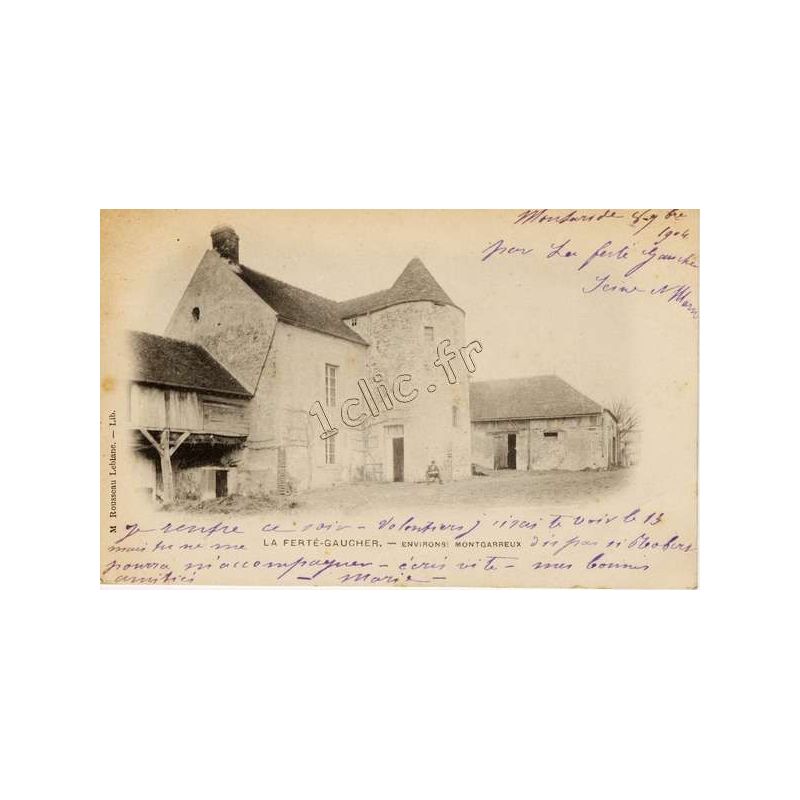 8-9bre
1904
par La ferté Gaucher
Seine & Marne
1clic.fr
M Rousseau Leblanc. — Lib.
ce soir - Volontiers j'irais te voir le 13
LA FERTÉ-GAUCHER. — ENVIRONS: MONTGARREUX
mais tu ne me dis pas si Robert
pourra m'accompagner - écris vite - mes bonnes
amitiés - Marie -